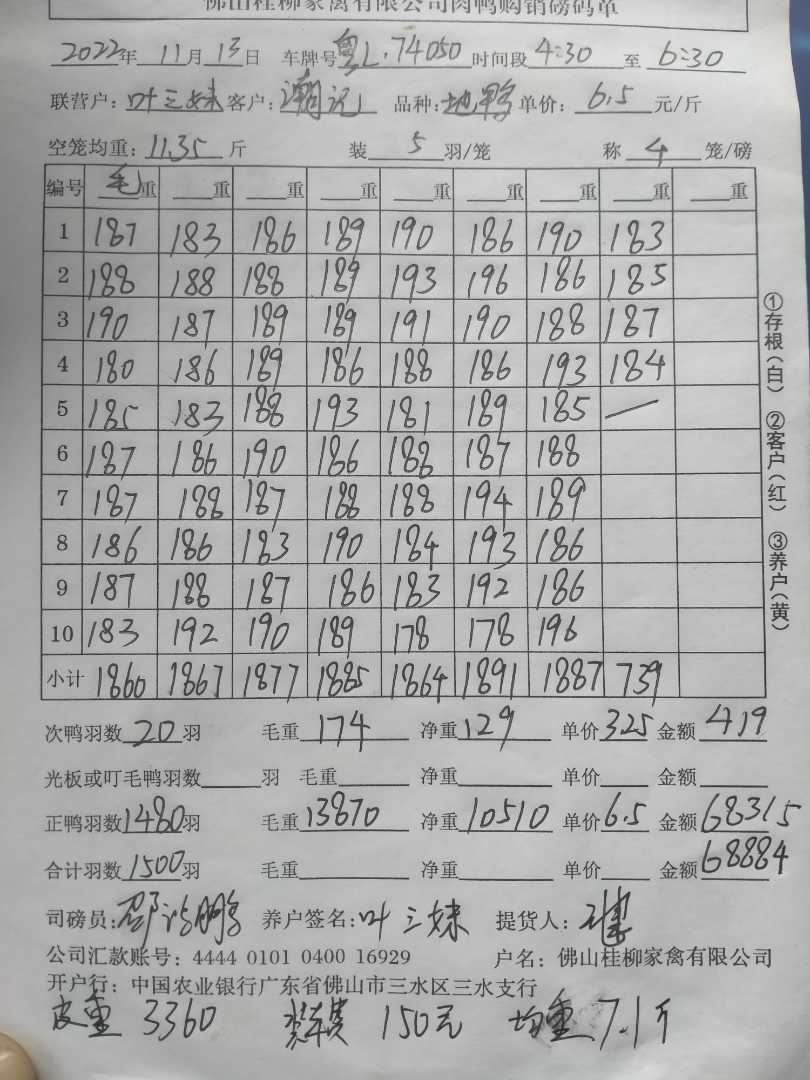 佛山桂柳家禽有限公司肉鸭购销磅码单
2022年 11月 13日 车牌号粤L.74050 时间段 4:30 至 6:30
联营户：叶三妹 客户：潮记 品种：地鸭 单价：6.5 元/斤
空笼均重：11.35 斤 装 5 羽/笼 称 4 笼/磅
编号 毛重 重 重 重 重 重 重 重 重
1 187 183 186 189 190 186 190 183
2 188 188 188 189 193 196 186 185
3 190 187 189 189 191 190 188 187
4 180 186 189 186 188 186 193 184
5 185 183 188 193 181 189 185 —
6 187 186 190 186 188 187 188
7 187 188 187 188 188 194 189
8 186 186 183 190 184 193 186
9 187 188 187 186 183 192 186
10 183 192 190 189 178 178 196
小计 1860 1867 1877 1885 1864 1891 1887 739
次鸭羽数 20 羽 毛重 174 净重 129 单价 3.25 金额 419
光板或叮毛鸭羽数 羽 毛重 净重 单价 金额
正鸭羽数 1480 羽 毛重 13870 净重 10510 单价 6.5 金额 68315
合计羽数 1500 羽 毛重 净重 单价 金额 68884
司磅员：邵诗鹏 养户签名：叶三妹 提货人：
公司汇款账号：4444 0101 0400 16929 户名：佛山桂柳家禽有限公司
开户行：中国农业银行广东省佛山市三水区三水支行
皮重 3360 装车费 150元 均重 7.1斤
①存根(白) ②客户(红) ③养户(黄)